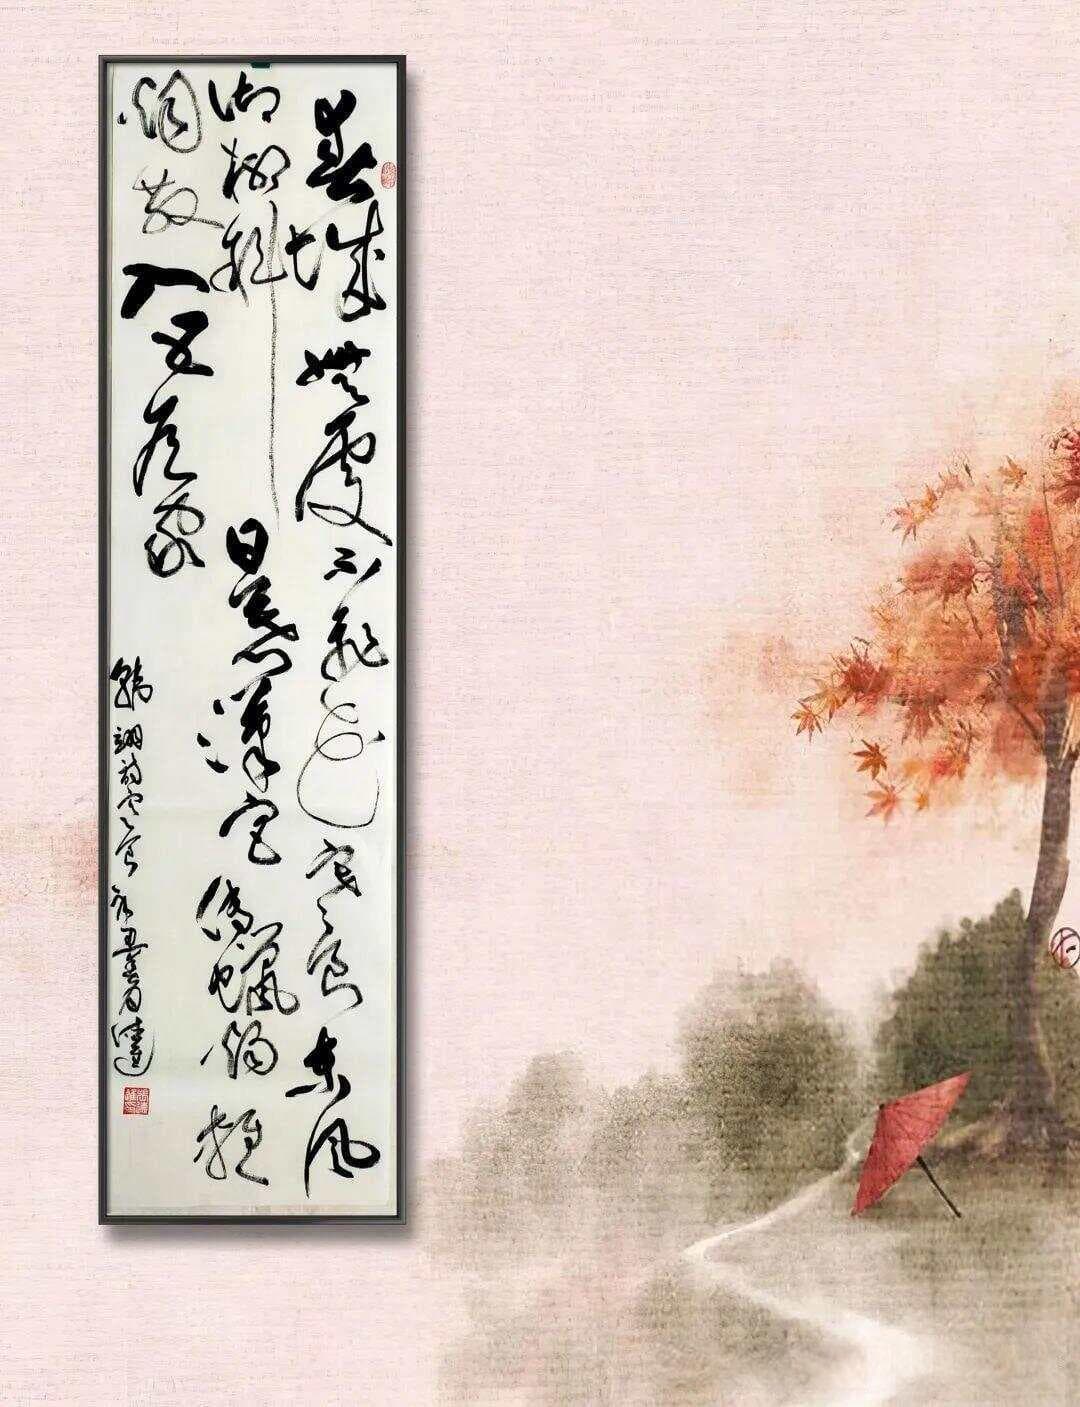 春城無處不飛花寒食東風
御柳斜日暮漢宮傳蠟燭輕
烟散入五侯家
韓翃詩寒食